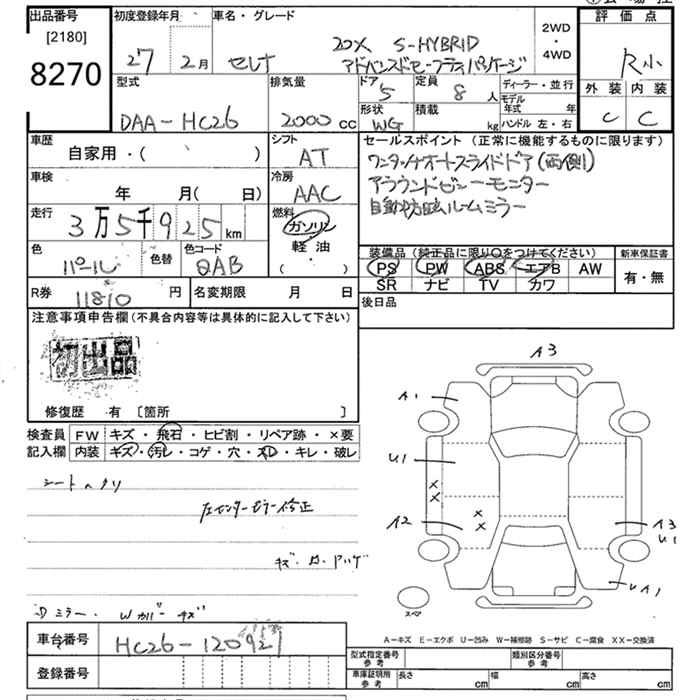 出品番号 初度登録年月 車名・グレード 評価点
[2180] 2WD
8270 27 2月 セレナ 20X S-HYBRID ・
アドバンスドセーフティパッケージ 4WD R小
型式 排気量 ドア 定員 ディーラー・並行 外装 内装
DAA-HC26 2000cc 5 8人 モデル年式 年 C C
形状 積載
WG kg ハンドル 左・右
車歴 シフト セールスポイント(正常に機能するものに限ります)
自家用・( ) AT ワンタッチオートスライドドア(両側)
車検 冷房 アラウンドビューモニター
年 月( 日) AAC 自動防眩ルームミラー
走行 燃料
3万5千925km ガソリン
色 色替 色コード 軽油 装備品(純正品に限り○をつけてください) 新車保証書
パール QAB ・( ) PS PW ABS エアB AW 有・無
SR ナビ TV カワ
R券 11810円 名変期限 月 日 後日品
注意事項申告欄(不具合内容等は具体的に記入して下さい)
初出品
修復歴 有 [箇所 ]
検査員 FW キズ・飛石・ヒビ割・リペア跡・×要
記入欄 内装 キズ・汚レ・コゲ・穴・スレ・キレ・破レ
シート
修正
キズ
Dミラー. Wカバーキズ
A3
A1
U1
A2
A3
U1
A1
スペア
A-キズ E-エクボ U-凹み W-補修跡 S-サビ C-腐食 XX-交換済
車台番号 HC26-120921
登録番号
型式指定番号 参考 類別区分番号 参考
車庫証明所 参考 長さ cm 幅 cm 高さ cm